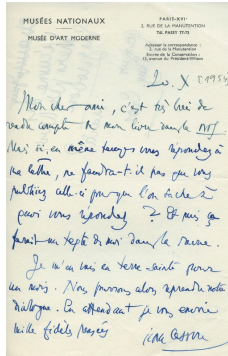 MUSÉES NATIONAUX
MUSÉE D'ART MODERNE
PARIS-XVIᵉ
2, RUE DE LA MANUTENTION
TÉL. PASSY 77-73
Adresser la correspondance :
2, rue de la Manutention
Entrée de la Conservation :
13, avenue du Président-Wilson
20. X [195
Mon cher ami, c'est très de
rendre compte de mon livre dans la NRF
Mais si, en même temps vous répondez à
ma lettre, ne faudra-t-il pas que vous
publiiez celle-ci pour que l'on sache à
quoi vous répondez ? Et puis ça
ferait un texte de moi dans la revue.
Je m'en vais en terre sainte pour
un mois. Nous pourrons alors reprendre notre
dialogue. En attendant je vous envoie
mille fidèles pensées
Jean Cassou